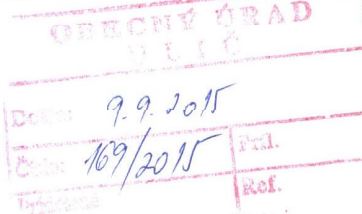 OBECNÝ ÚRAD
ULIČ
Došlo: 9.9.2015
Číslo: 169/2015 Príl.
Ref.